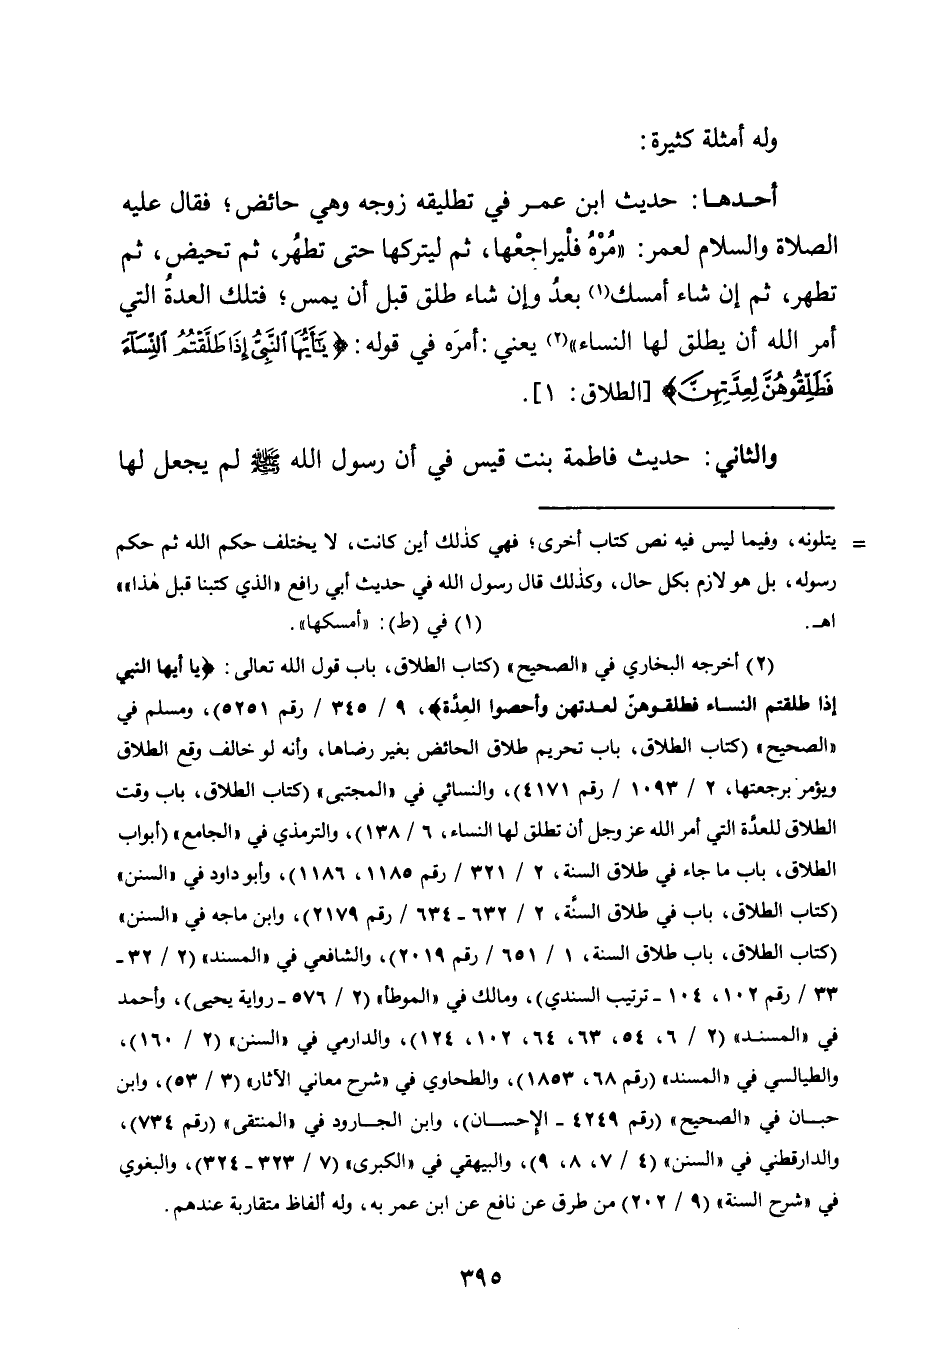 وله أمثلة كثيرة:
أحدها: حديث ابن عمر في تطليقه زوجه وهي حائض؛ فقال عليه
الصلاة والسلام لعمر: «مُرْهُ فلْيراجعْها، ثم ليتركها حتى تطهُر، ثم تحيض، ثم
تطهر، ثم إن شاء أمسك(١) بعدُ وإن شاء طلق قبل أن يمس؛ فتلك العدةُ التي
أمر الله أن يطلق لها النساء»(٢) يعني: أمرَه في قوله: ﴿يَٰٓأَيُّهَا ٱلنَّبِىُّ إِذَا طَلَّقْتُمُ ٱلنِّسَآءَ
فَطَلِّقُوهُنَّ لِعِدَّتِهِنَّ﴾ [الطلاق: ١].
والثاني: حديث فاطمة بنت قيس في أن رسول الله ﷺ لم يجعل لها
= يتلونه، وفيما ليس فيه نص كتاب أخرى؛ فهي كذٰلك أين كانت، لا يختلف حكم الله ثم حكم
رسوله، بل هو لازم بكل حال، وكذٰلك قال رسول الله في حديث أبي رافع «الذي كتبنا قبل هٰذا»»
اهـ. (١) في (ط): «أمسكها».
(٢) أخرجه البخاري في «الصحيح» (كتاب الطلاق، باب قول الله تعالى: ﴿يا أيها النبي
إذا طلقتم النساء فطلقوهنّ لعدتهن وأحصوا العِدَّة﴾، ٩ / ٣٤٥ / رقم ٥٢٥١)، ومسلم في
«الصحيح» (كتاب الطلاق، باب تحريم طلاق الحائض بغير رضاها، وأنه لو خالف وقع الطلاق
ويؤمر برجعتها، ٢ / ١٠٩٣ / رقم ٤١٧١)، والنسائي في «المجتبى» (كتاب الطلاق، باب وقت
الطلاق للعدَّة التي أمر الله عز وجل أن تطلق لها النساء، ٦ / ١٣٨)، والترمذي في «الجامع» (أبواب
الطلاق، باب ما جاء في طلاق السنة، ٢ / ٣٢١ / رقم ١١٨٥، ١١٨٦)، وأبو داود في «السنن»
(كتاب الطلاق، باب في طلاق السنَّة، ٢ / ٦٣٢ - ٦٣٤ / رقم ٢١٧٩)، وابن ماجه في «السنن»
(كتاب الطلاق، باب طلاق السنة، ١ / ٦٥١ / رقم ٢٠١٩)، والشافعي في «المسند» (٢ / ٣٢ -
٣٣ / رقم ١٠٢، ١٠٤ - ترتيب السندي)، ومالك في «الموطأ» (٢ / ٥٧٦ - رواية يحيى)، وأحمد
في «المسند» (٢ / ٦، ٥٤، ٦٣، ٦٤، ١٠٢، ١٢٤)، والدارمي في «السنن» (٢ / ١٦٠)،
والطيالسي في «المسند» (رقم ٦٨، ١٨٥٣)، والطحاوي في «شرح معاني الآثار» (٣ / ٥٣)، وابن
حبان في «الصحيح» (رقم ٤٢٤٩ - الإحسان)، وابن الجارود في «المنتقى» (رقم ٧٣٤)،
والدارقطني في «السنن» (٤ / ٧، ٨، ٩)، والبيهقي في «الكبرى» (٧ / ٣٢٣ - ٣٢٤)، والبغوي
في «شرح السنة» (٩ / ٢٠٢) من طرق عن نافع عن ابن عمر به، وله ألفاظ متقاربة عندهم.
٣٩٥